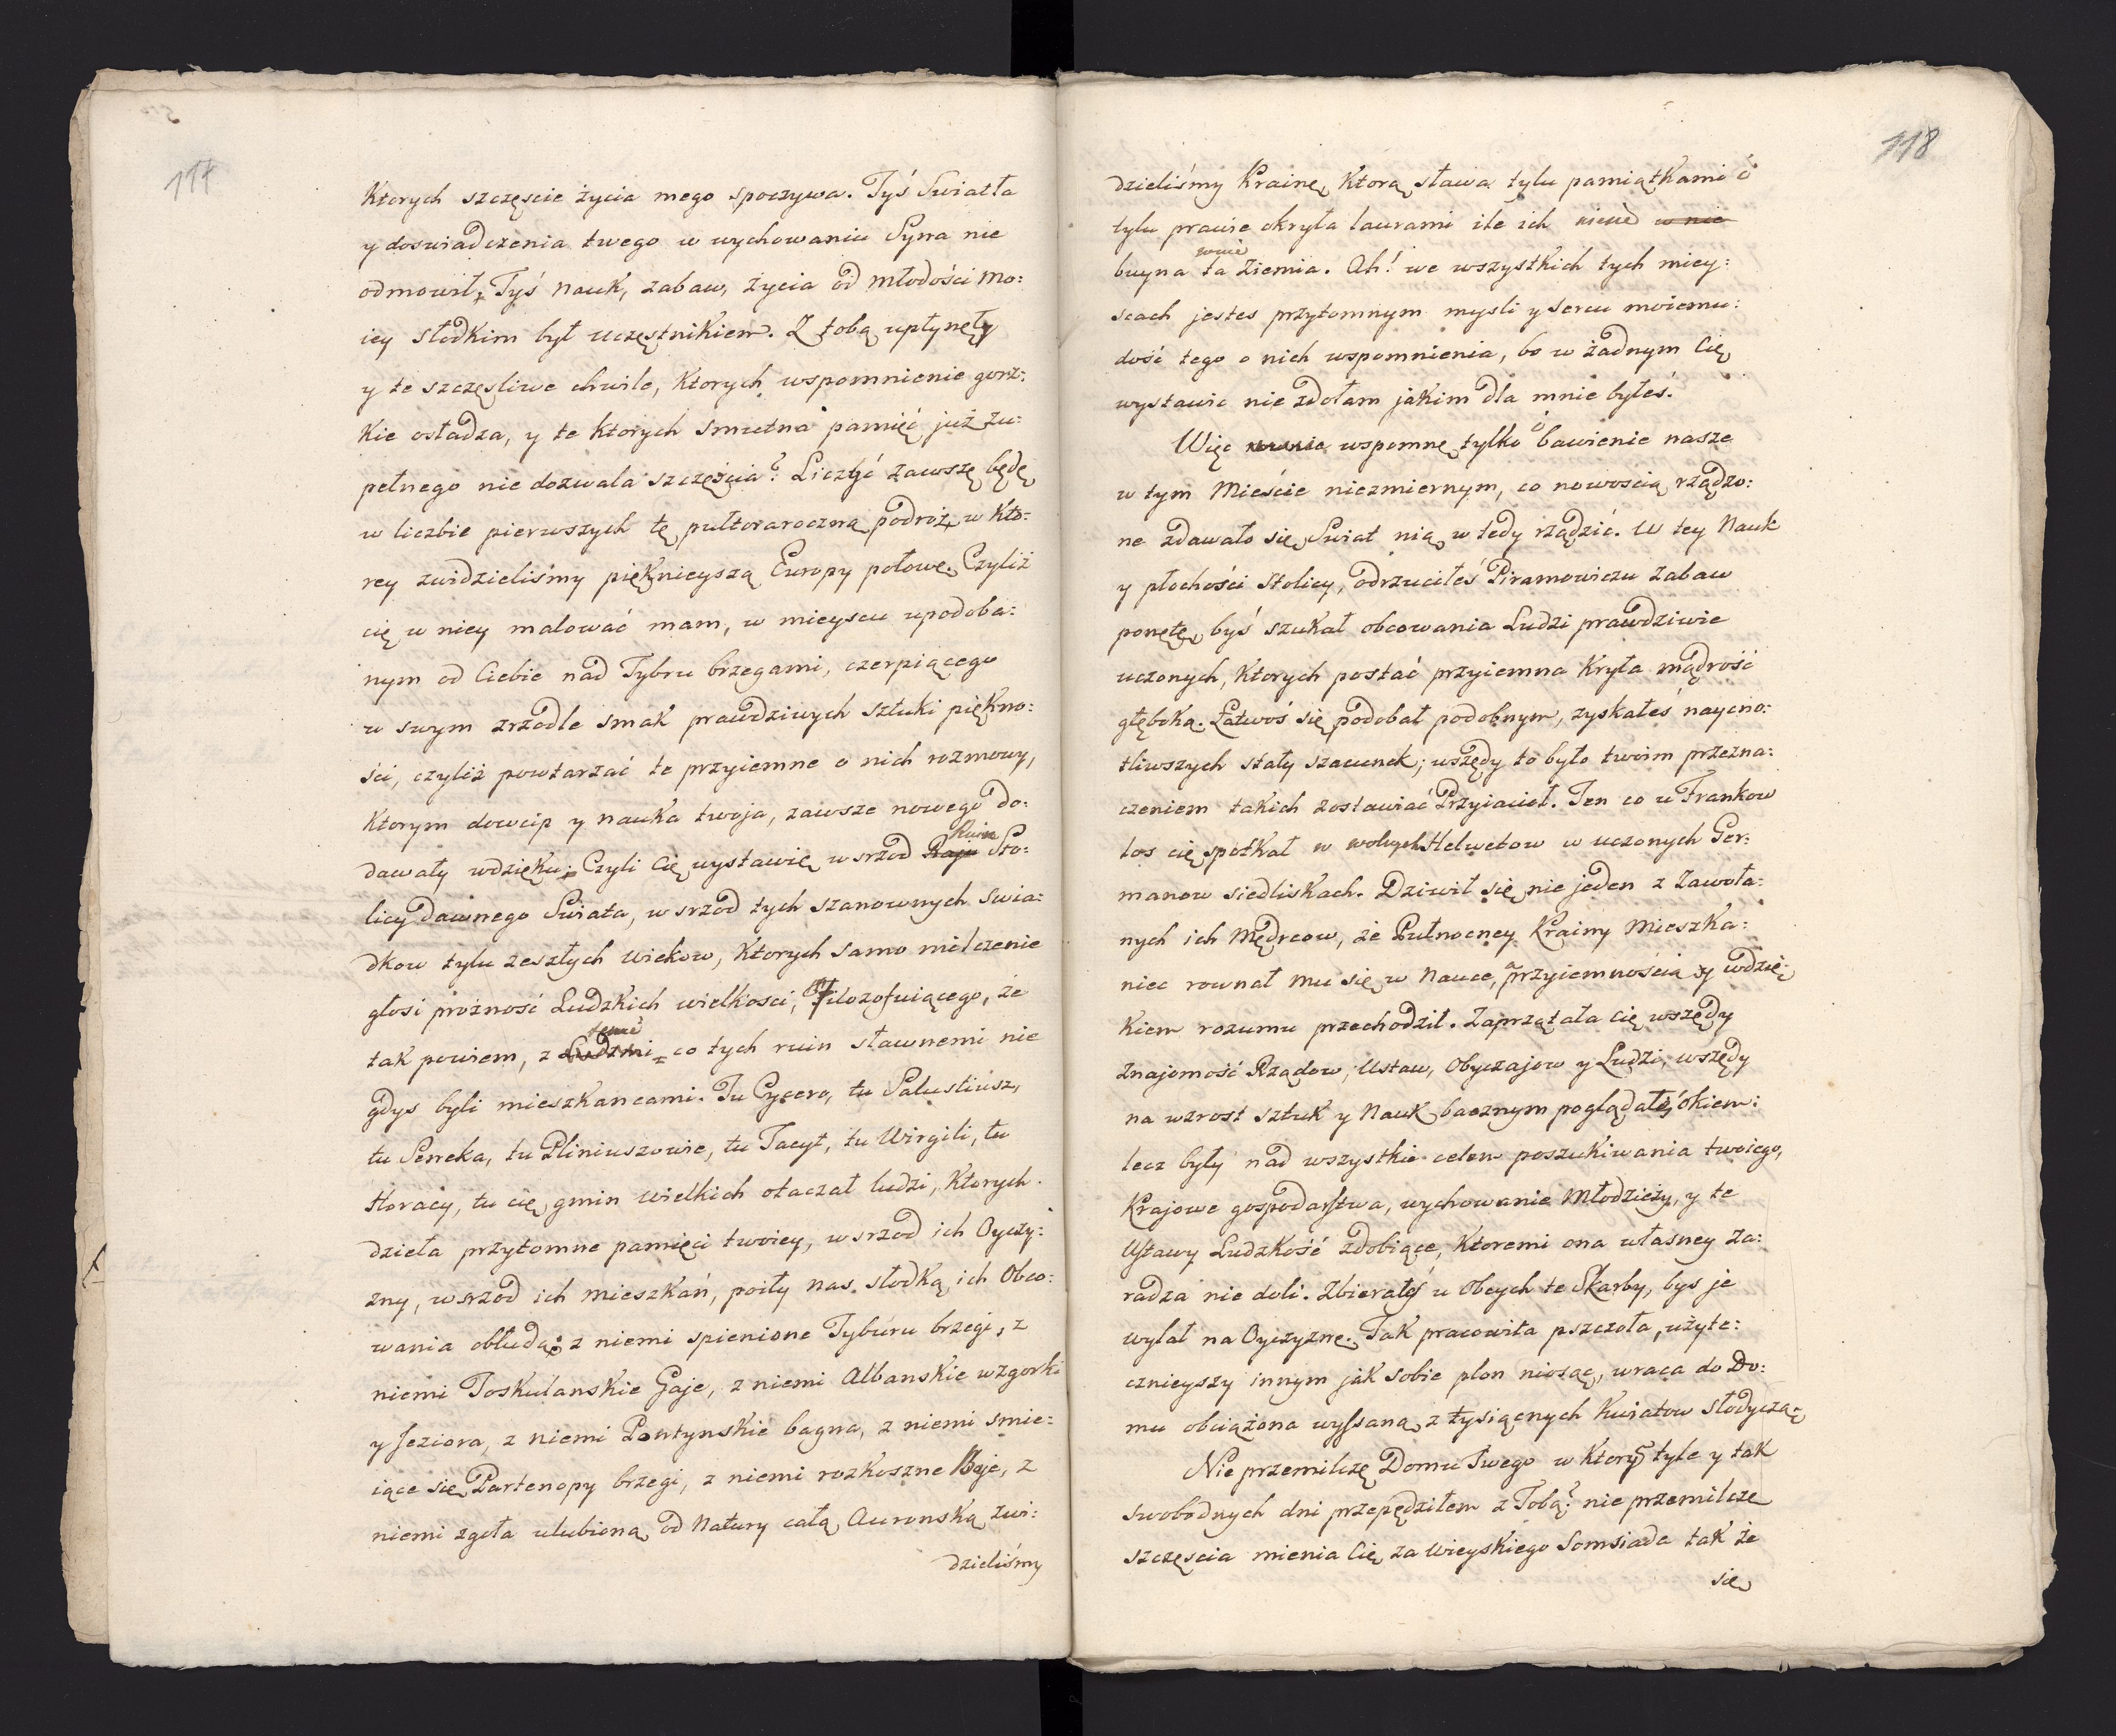 117
Ktorych szczęscie życia mego spoczywa. Tyś Swiatła
y doswiadczenia twego w wychowaniu Syna nie
odmowił, Tyś Nauk, zabaw, życia od młodości mo:
iey słodkim był uczęstnikiem. Z tobą upłynęły
y te szczęsliwe chwile, Ktorych wspomnienie gorz:
Kie osładza, y te Ktorych smutna pamięć już zu:
pełnego nie dozwala szczęścia? Liczyć zawszę będę
w liczbie pierwszych tę pułtoraroczną podroż, w Kto:
rey zwidzieliśmy pięknieyszą Europy połowę. Czyliż
cię w niey malować mam, w mieyscu upodoba:
nym od Ciebie nad Tybru brzegami, czerpiącego
w swym zrzodle smak prawdziwych sztuki piękno:
ści, czyliż powtarzać te przyiemne o nich rozmowy,
Ktorym dowcip y nauka twoja, zawsze nowego do:
dawały wdzięku; Czyli Cię wystawię wsrzod Raju Ruin Sto:
licy dawnego Swiata, wsrzod tych szanownych swia:
dkow tylu zeszłych wiekow, Ktorych samo milczenie
głosi prożność Ludzkich wielkosci, Filozofuiącego, że
tak powiem, z Ludzmi temi co tych ruin sławnemi nie
gdys byli mieszkancami. Tu Cycero, tu Salustiusz,
tu Seneka, tu Pliniuszowie, tu Tacyt, tu Wirgili, tu
Horacy, tu cię gmin wielkich otaczał ludzi, Ktorych
dzieła przytomne pamięci twoiey, wsrzod ich Oyczy:
zny, wsrzod ich mieszkań, poiły nas słodką ich Obco:
wania obłudą; z niemi spienione Tyburu brzegi, z
niemi Toskulanskie Gaje, z niemi Albanskie wzgorki
y Jeziora, z niemi Pontynskie bagna, z niemi smie:
iące się Partenopy brzegi, z niemi rozkoszne Baje, z
niemi zgoła ulubioną od Natury całą Auzonską zwi:
dzieliśmy
118
dzieliśmy Krainę, Ktorą sława tylu pamiątkami
tylu prawie okryła laurami ile ich w nie
buyna ta Ziemia. Ah! we wszystkich tych miey:
scach jestes przytomnym mysli y sercu moiemu:
dość tego o nich wspomnienia, bo w żadnym Cię
wystawic nie zdołam jakim dla mnie byłeś.
Więc wspomnę tylko o bawienie nasze
w tym Mieście niezmiernym, co nowością rządzo:
ne zdawało się Swiat nią w tedy rządzić. W tey Nauk
y płochości stolicy, odrzuciłeś Piramowiczu zabaw
ponętę, byś szukał obcowania Ludzi prawdziwie
uczonych, Ktorych postać przyiemna Kryła mądrość
głęboką. Łatwoś się podobał podobnym, zyskałeś naycno:
tliwszych stały szacunek; wszędy to było twoim przezna:
czeniem takich zostawiać Przyiaciel. Ten co u Frankow
los cię spotkał w wolnych Helwetow w uczonych Ger:
manow siedliskach. Dziwił się nie jeden z Zawoła:
nych ich Mędrcow, że Pułnocney Krainy Mieszka:
niec rownał mu się w Nauce, a przyiemnością y wdzię:
kiem rozumu przechodził. Zaprzątała cię wszędy
Znajomość Rządow, Ustaw, Obyczajow y Ludzi, wszędy
na wzrost sztuk y Nauk bacznym poglądałeś okiem:
lecz były nad wszystkie celem poszukiwania twoiego,
Krajowe gospodarstwa, wychowanie Młodzieży, y te
Ustawy Ludzkość zdobiące, Ktoremi ona własney za:
radza nie doli. Zbierałeś u Obcych te Skarby, bys je
wylał na Oyczyznę. Tak pracowita pszczoła, użyte:
cznieyszy innym jak sobie plon niosąc, wraca do Do:
mu obciążona wyssaną z tysiącnych Kwiatow słodyczą.
Nie przemilczę Domu Twego w Ktorym tyle y tak
swobodnych dni przepędziłem z Tobą? nie przemilczę
szczęscia mienia Cię za wieyskiego Somsiada tak że
się